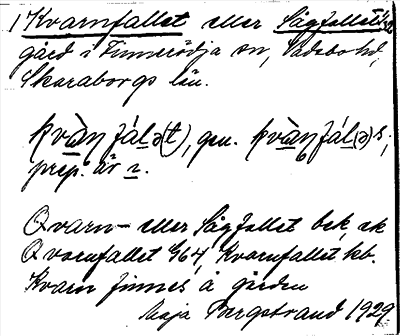 1 Kvarnfallet eller Sågfallet
gård i Finnerödja sn, Vadsbo hd,
Skaraborgs län.
kvà̱ṇfáḻə(t), gen. kvà̱ṇfáḻ(ə)s;
prep. är ɪ̱.
Qvarn- eller Sågfallet bek, ek
Qvarnfallet 964, Kvarnfallet kb.
Kvarn finnes å gården
Maja Bergstrand 1929